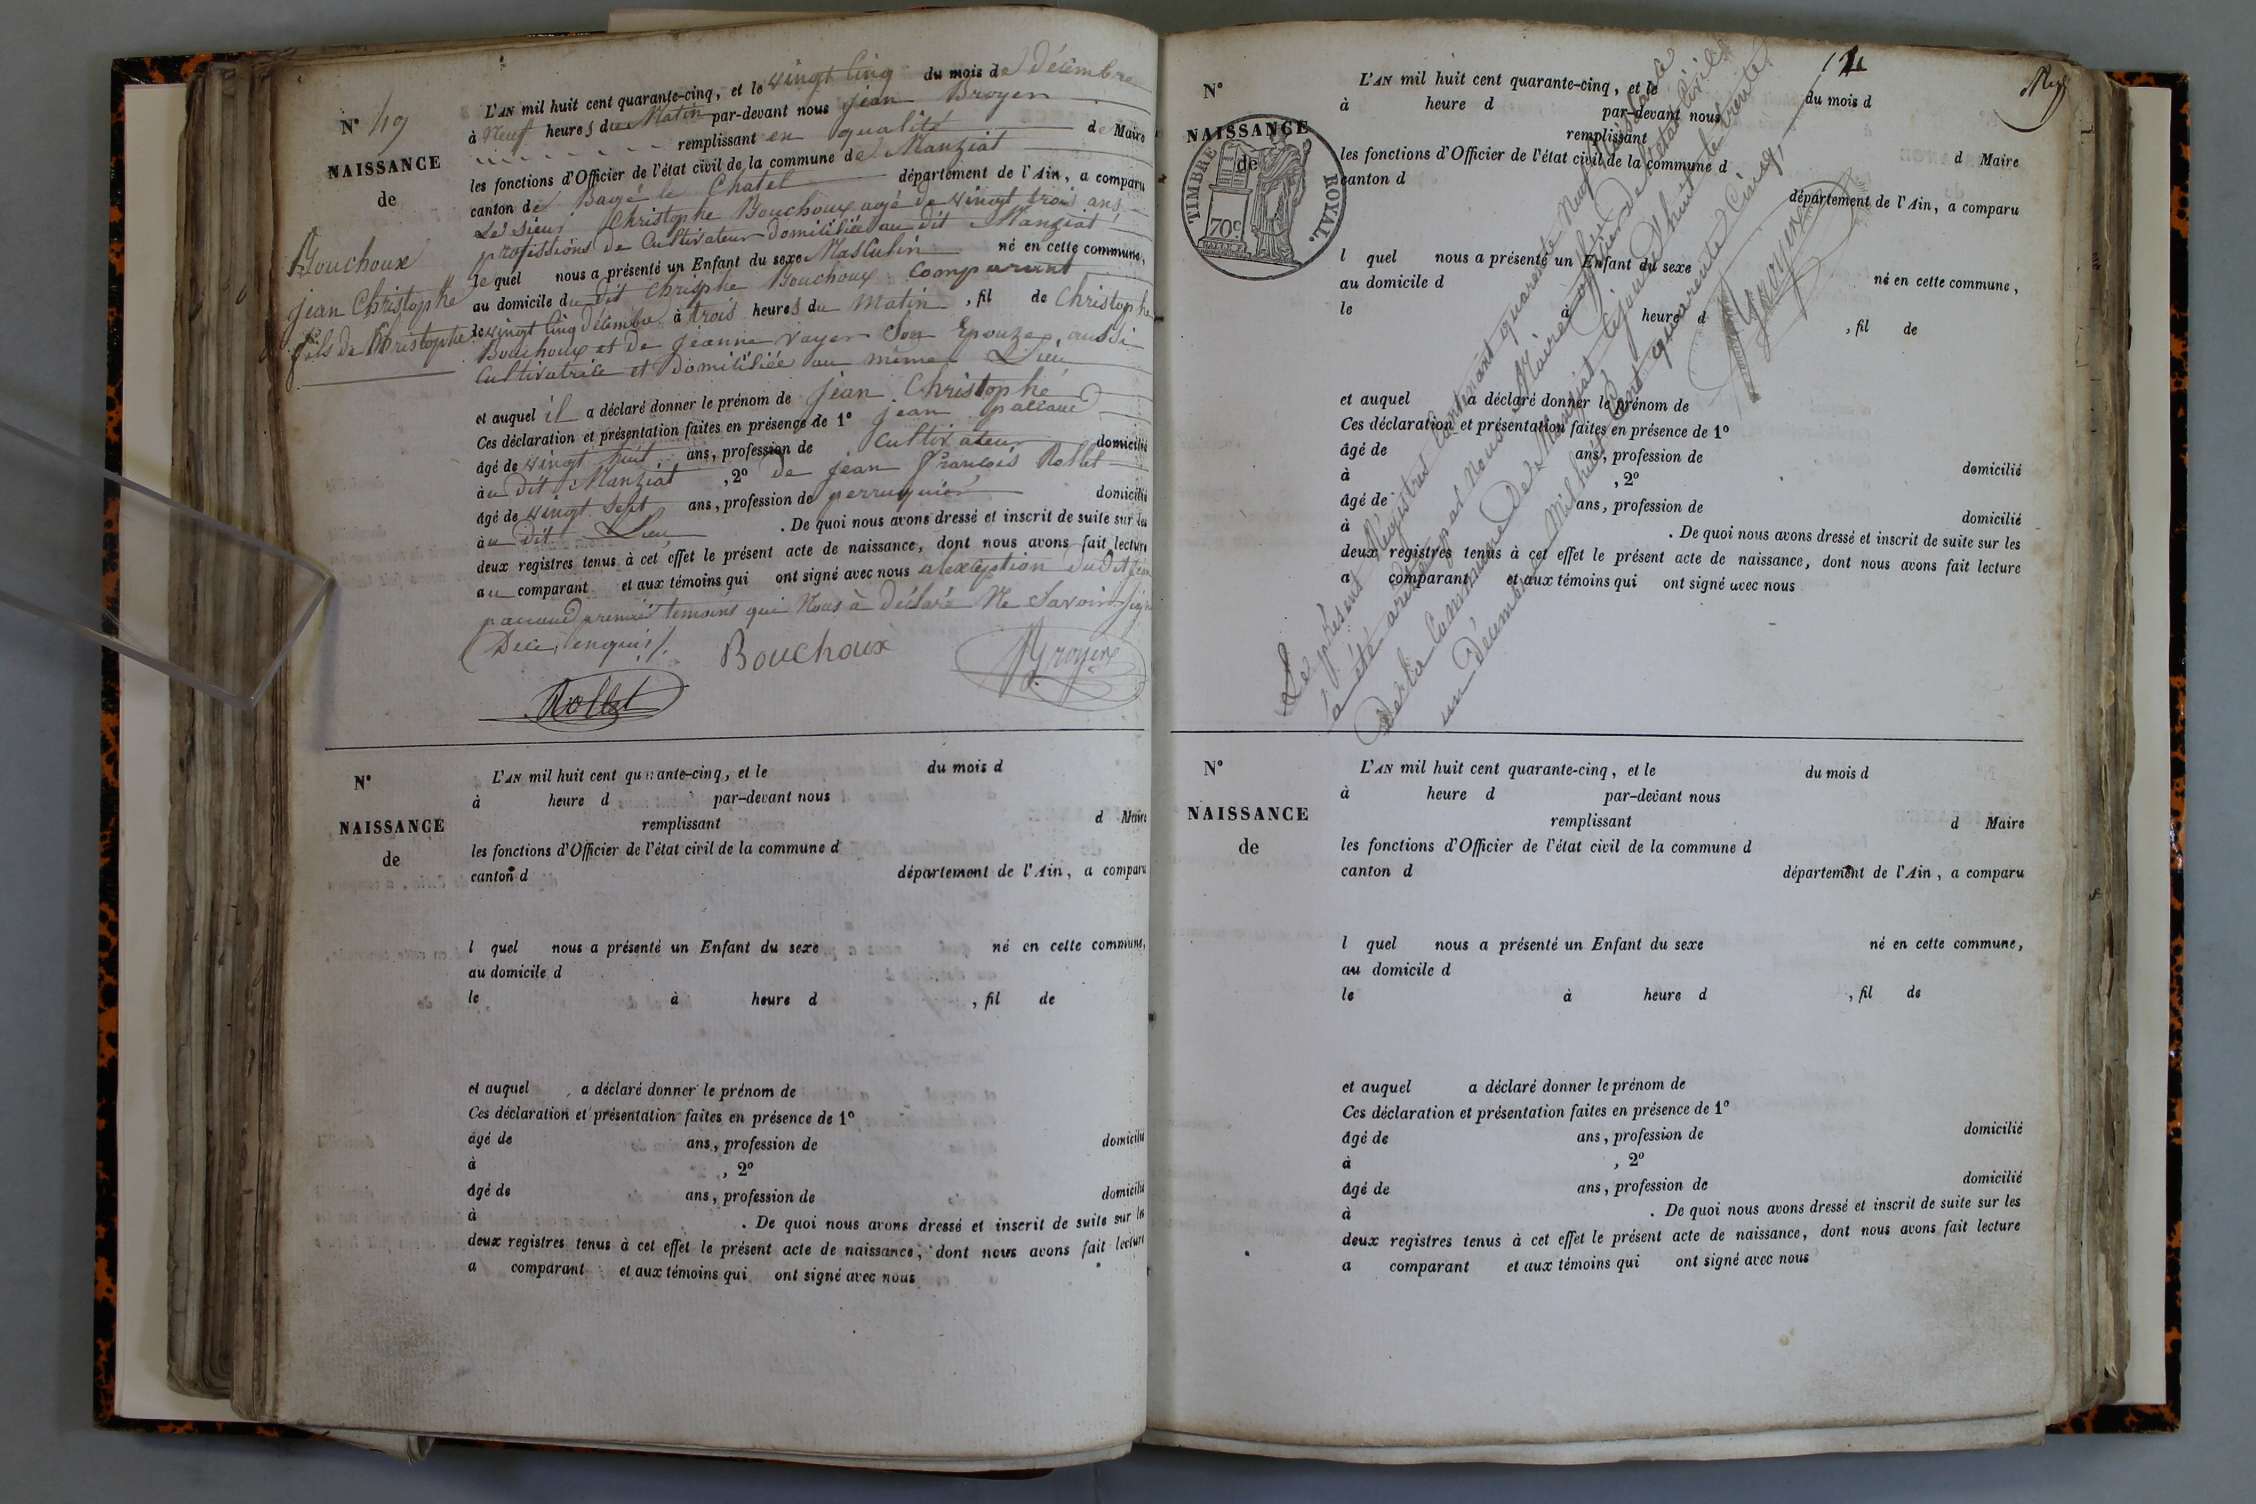 N° 49
NAISSANCE
de
Bouchoux
jean Christophe
fils de Christophe
L'AN mil huit cent quarante-cinq, et le vingt Cinq du mois de Décembre
à Neuf heures du Matin par-devant nous jean Broyer
remplissant en qualité de Maire
les fonctions d'Officier de l'état civil de la commune de Manziat
canton de Bagé le Chatel département de l'Ain, a comparu
Le sieur Christophe Bouchoux agé de vingt trois ans
professions de Cultivateur domiciliée au dit Manziat
le quel nous a présenté un Enfant du sexe Masculin né en cette commune,
au domicile du dit Chrisphe Bouchoux Comparant
le vingt Cinq décembre à trois heures du Matin, fil de Christophe
Bouchoux et de jeanne Voyer Son Epouze, aussi
Cultivatrice et Domiciliée au même Lieu
et auquel il a déclaré donner le prénom de jean Christophe
Ces déclaration et présentation faites en présence de 1° jean
âgé de vingt huit ans, profession de Cultivateur domicilié
àu dit Manziat, 2° De jean françois Rollet
âgé de vingt Sept ans, profession de perruquier domicilié
àu Dit Lieu. De quoi nous avons dressé et inscrit de suite sur les
deux registres tenus à cet effet le présent acte de naissance, dont nous avons fait lecture
au comparant et aux témoins qui ont signé avec nous alexception du Dit jean
premier temoins qui Nous à Déclaré Ne Savoir Sign
Dece enquis/.
Bouchoux
Broyer
Rollet
N°
NAISSANCE
de
L'AN mil huit cent quarante-cinq, et le du mois d
à heure d par-devant nous
remplissant d Maire
les fonctions d'Officier de l'état civil de la commune d
canton d département de l'Ain, a comparu
l quel nous a présenté un Enfant du sexe né en cette commune,
au domicile d
le à heure d, fil de
et auquel a déclaré donner le prénom de
Ces déclaration et présentation faites en présence de 1°
âgé de ans, profession de domicilié
à, 2°
âgé de ans, profession de domicilié
à. De quoi nous avons dressé et inscrit de suite sur les
deux registres tenus à cet effet le présent acte de naissance, dont nous avons fait lecture
a comparant et aux témoins qui ont signé avec nous
N°
NAISSANCE
de
TIMBRE ROYAL.
70c
L'AN mil huit cent quarante-cinq, et le du mois d
à heure d par-devant nous
remplissant d Maire
les fonctions d'Officier de l'état civil de la commune d
canton d département de l'Ain, a comparu
l quel nous a présenté un Enfant du sexe né en cette commune,
au domicile d
le à heure d, fil de
et auquel a déclaré donner le prénom de
Ces déclaration et présentation faites en présence de 1°
âgé de ans, profession de domicilié
à, 2°
âgé de ans, profession de domicilié
à. De quoi nous avons dressé et inscrit de suite sur les
deux registres tenus à cet effet le présent acte de naissance, dont nous avons fait lecture
a comparant et aux témoins qui ont signé avec nous
Le présent Régistre Contenant quarante Neuf Naissance
a été arrêté par Nous Maire officier de l'état Civile
De la Commune De Manziat Cejourd'huit le trente
un Décembre Mil huit Cent quarente Cinq,
Broyer
N°
NAISSANCE
de
L'AN mil huit cent quarante-cinq, et le du mois d
à heure d par-devant nous
remplissant d Maire
les fonctions d'Officier de l'état civil de la commune d
canton d département de l'Ain, a comparu
l quel nous a présenté un Enfant du sexe né en cette commune,
au domicile d
le à heure d, fil de
et auquel a déclaré donner le prénom de
Ces déclaration et présentation faites en présence de 1°
âgé de ans, profession de domicilié
à, 2°
âgé de ans, profession de domicilié
à. De quoi nous avons dressé et inscrit de suite sur les
deux registres tenus à cet effet le présent acte de naissance, dont nous avons fait lecture
a comparant et aux témoins qui ont signé avec nous